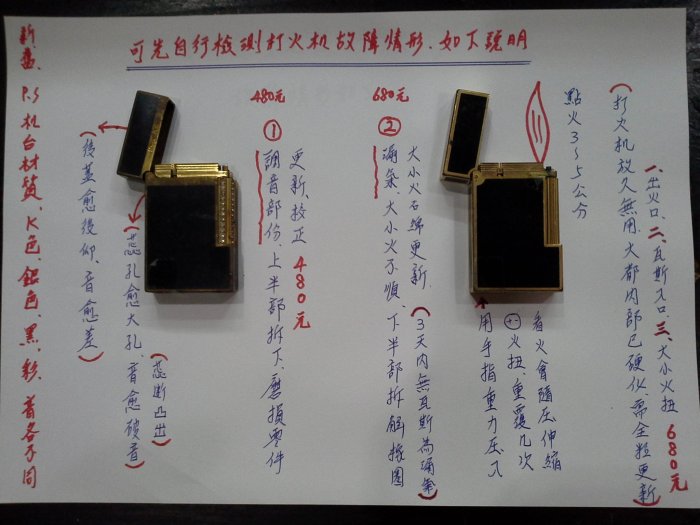 可先自行檢測打火机故障情形.如下說明
一、出火口、二、瓦斯入口、三、大小火扭 680元
(打火机放久無用、大都內部已硬化、需全粒更新)
點火3~5公分
看火會隨压伸縮
⊕⊖火扭、重覆几次
用手指重力压入
680元
② 大小火石綿更新.(3天內無瓦斯為漏氣)
漏氣、大小火不順、下半部拆解换圈
480元
① 更新、校正 480元
調音部份、上半部拆下、磨損零件
(蕊断凸出)
(蕊孔愈大孔、音愈破音)
(後蓋愈後仰、音愈差)
新舊、P.S机台材質、K色、銀色、黑、彩、音各不同